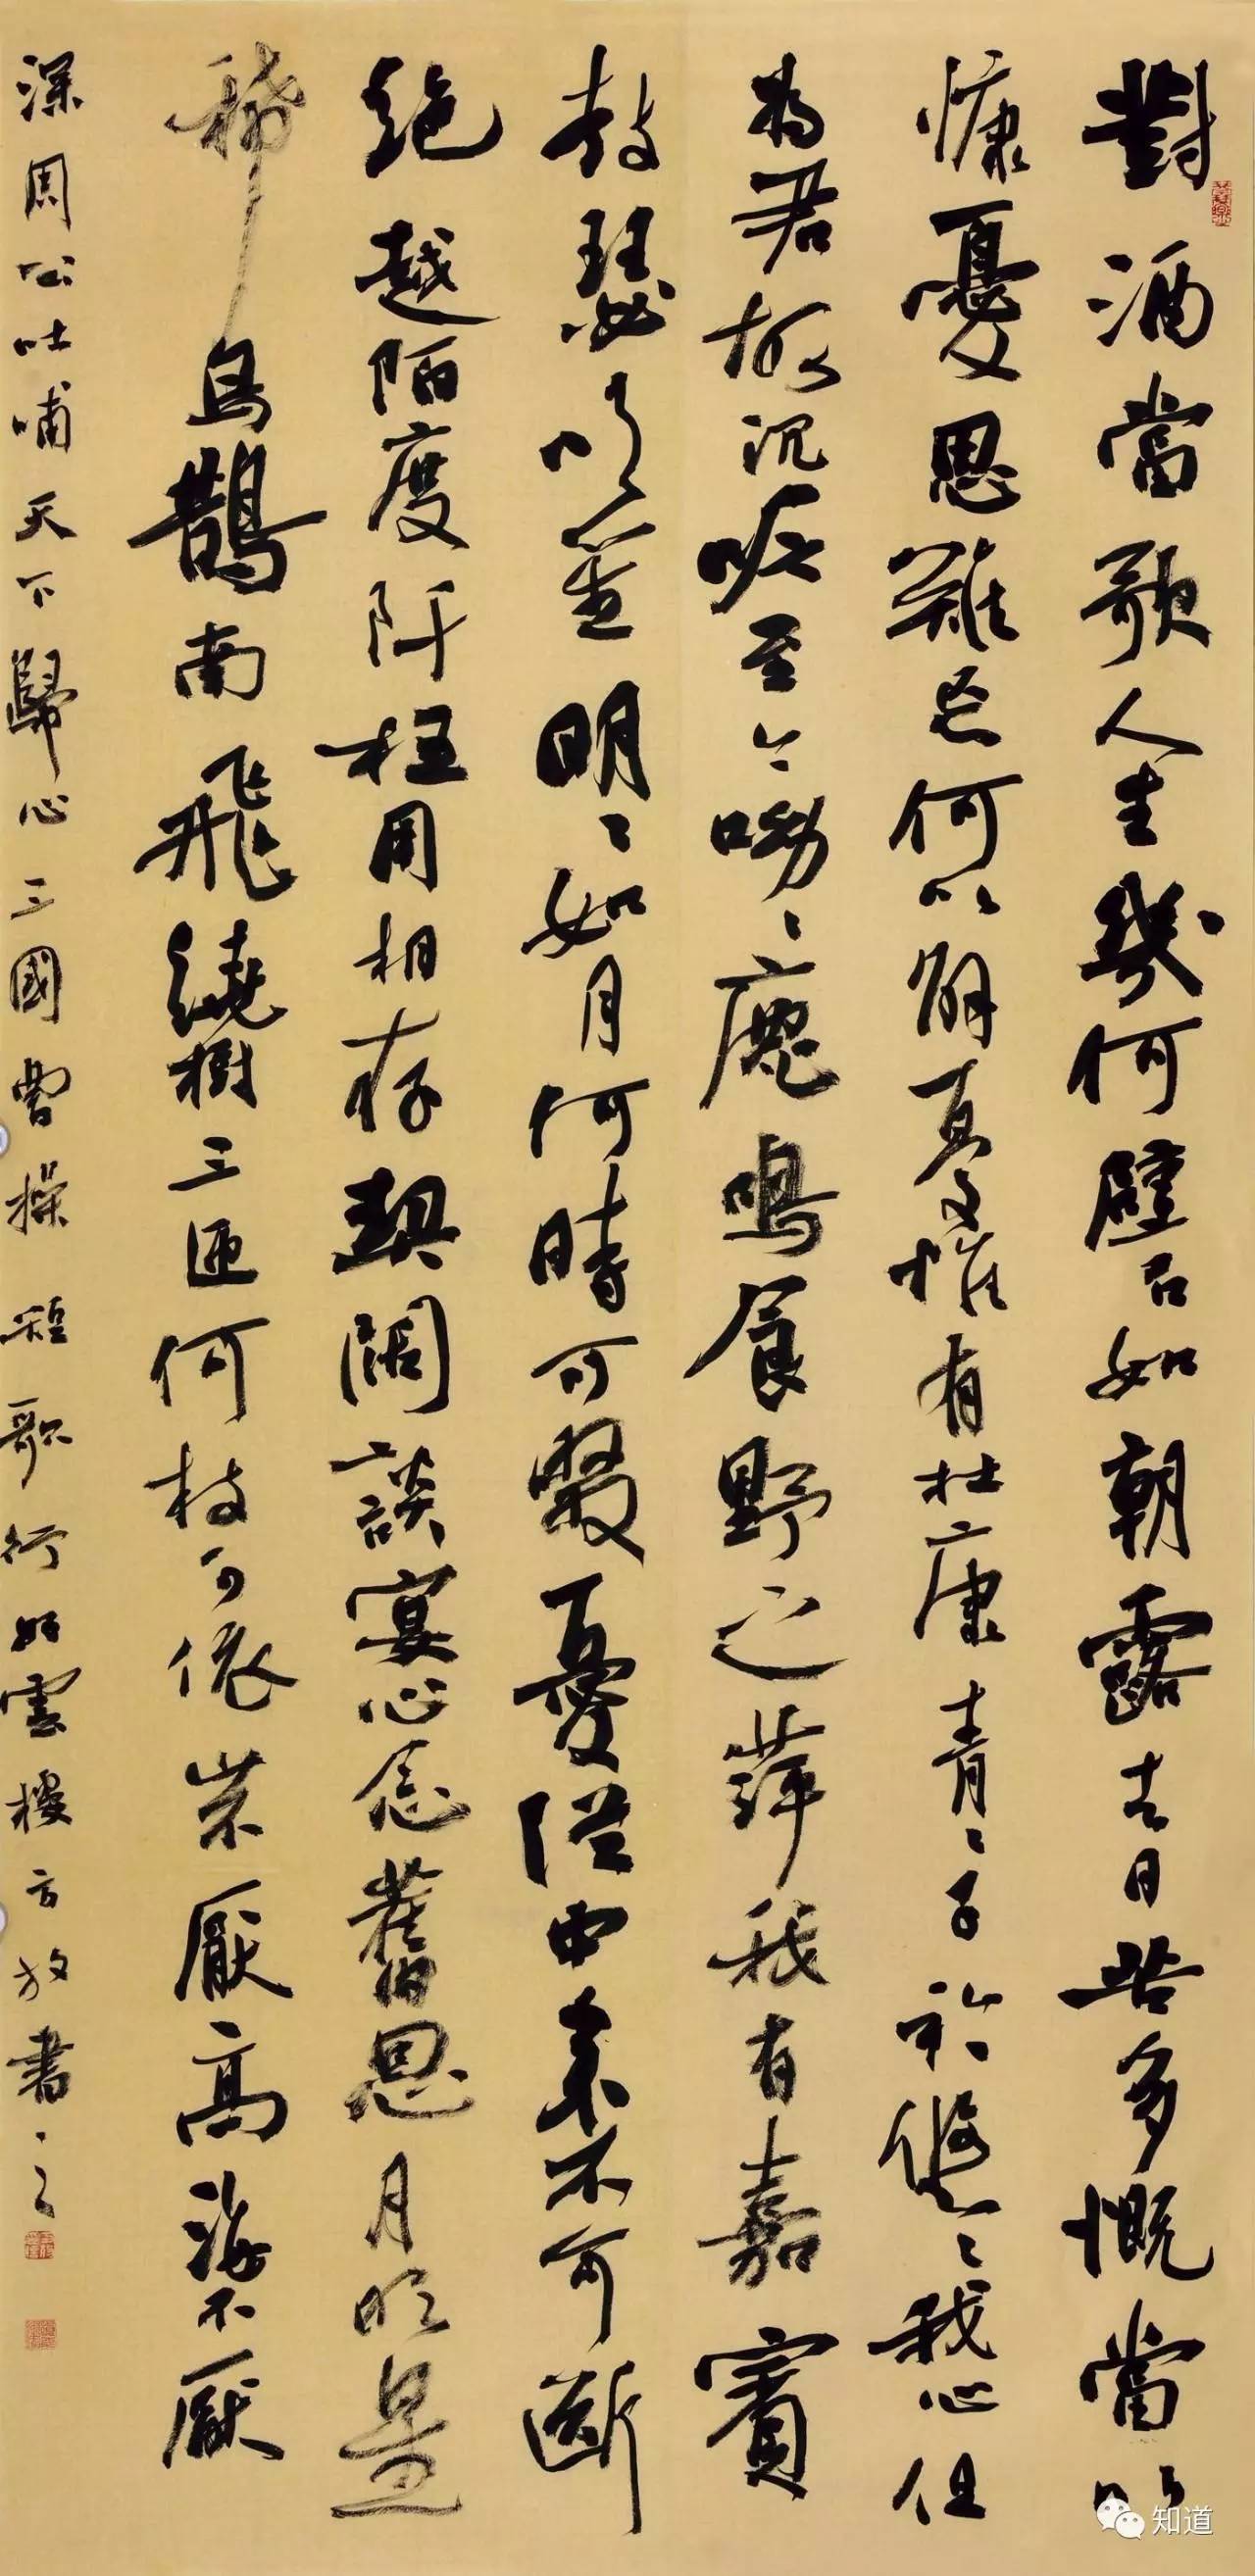 對酒當歌人生幾何譬如朝露去日苦多慨當以
慷憂思難忘何以解憂惟有杜康青〻子衿悠〻我心但
為君故沉吟至今呦〻鹿鳴食野之萍我有嘉賓
鼓瑟吹笙明〻如月何時可掇憂從中來不可斷
絕越陌度阡枉用相存契闊談宴心念舊恩月明星
稀烏鵲南飛繞樹三匝何枝可依山不厭高海不厭
深周公吐哺天下歸心三國曹操短歌行如雲樓方放書之
知道